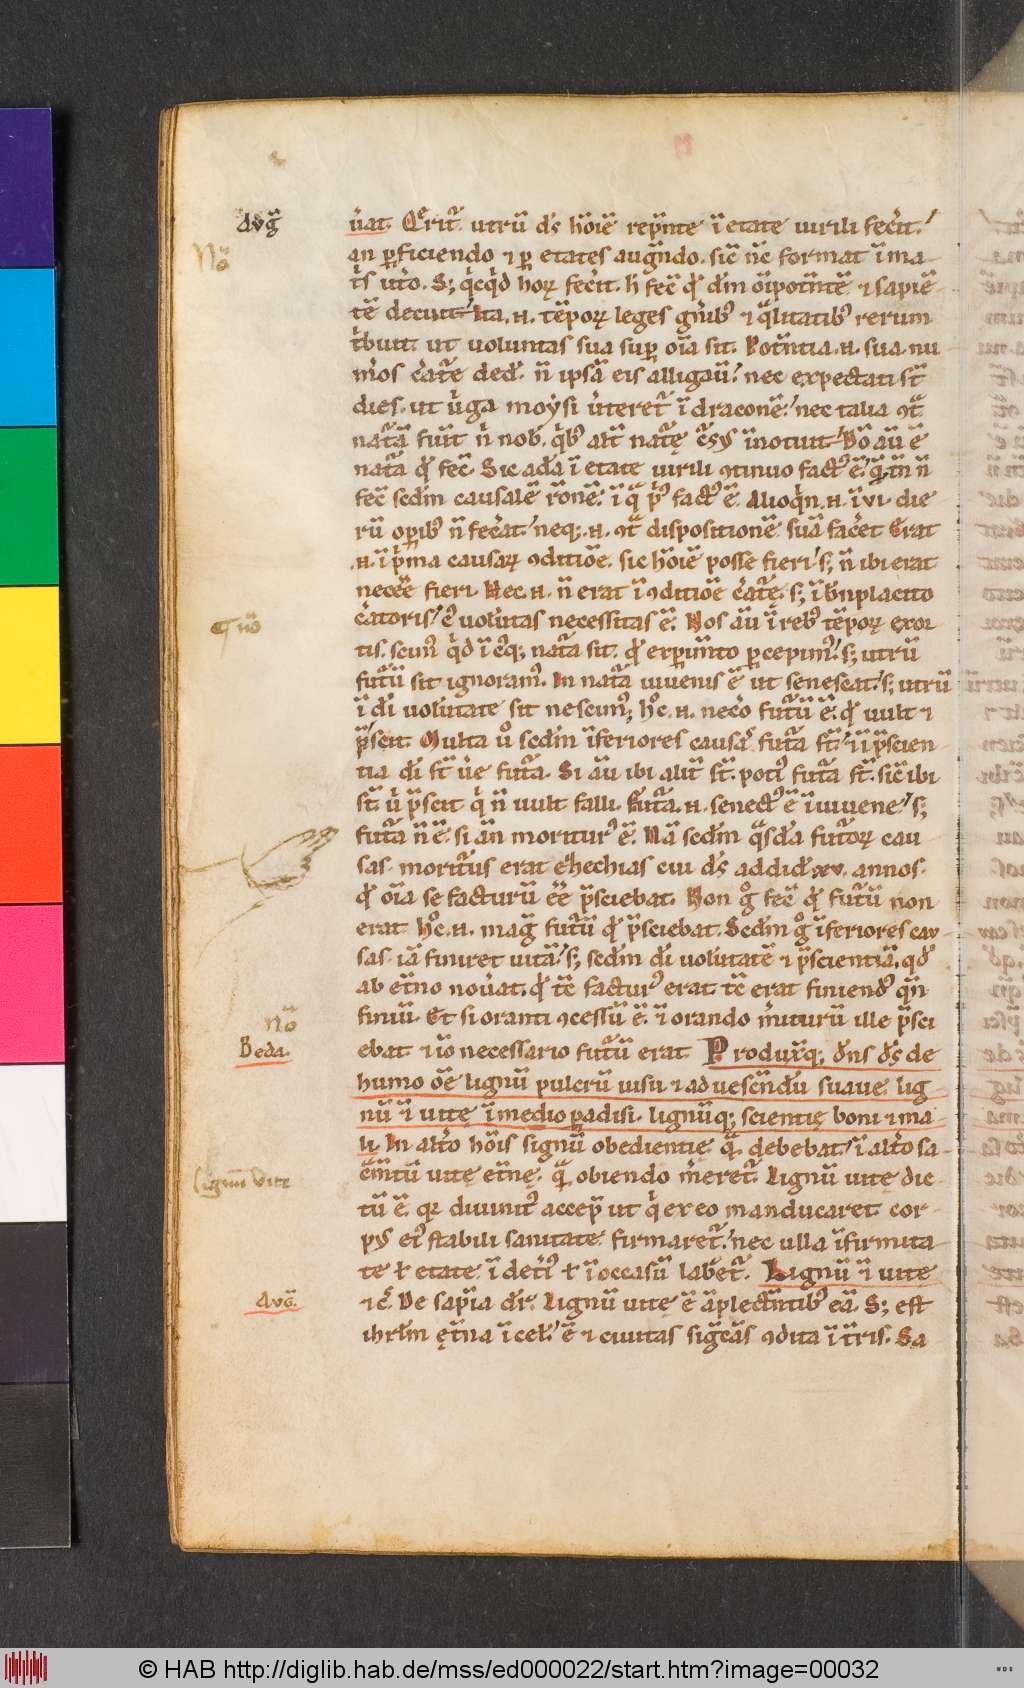 Aug̃
u̓at. Qͦrit᷑ utrū ds̓ hoı̄ē rep̄nte ı̄ etate uirili fec̓it.
Nō
an ꝑficiendo ⁊ ꝑ etates augn̄do. sic̄ nc̄ format ı̄ ma-
t̓s ut̓o. S; q̓cq̓d hoꝝ fec̓it. h̓ fec̄ qd̓ dm̄ oı̄potn̄tē ⁊ sapiē
tē decuit. Ita .n. tēpoꝝ leges gn̓ib᷒ ⁊ q̄litatib᷒ rerum
t̓buit. ut uoluntas sua suꝑ oı̄a sit. Potn̄tia .n. sua nu
m̓os c̓at᷑e ded̓. n̄ ipsā eis alligau̅. nec expectati st̄
dies. ut u̓ga moẏsi u̓teret᷑ ı̄ draconē. nec talia ꝯt᷑
nat᷑ā fuı̄t n̓ nob̓. q̓b᷒ alit̄ nat᷑ę c̄sꝰ ı̄notuit. Nō au̅ ē
nat᷑ā qd̓ fec̄. Sic adā ı̄ etate uirili ꝯtinuo fact᷒ ē. q̄mı̄ n̄
fec̄ scd̓m causalē r̄onē. ı̄ q̄ p̓᷒ fact᷒ ē. Alioq̓n .n. ı̄ vi. die
rū oꝑib᷒ n̄ fec̓at. neq; .n. ꝯt᷑ dispositionē suā fac̓et. Erat
.n. ı̄ p̓ma causaꝝ ꝯditiōe. sic hoı̄ē posse fieri. s; n̄ ibi erat
necēē fieri. Nec .n. n̄ erat ı̄ ꝯditiōe c̓at᷑ę. s; ı̄ bn̄placito
c̓atoris. c̓᷒ uolūtas necessitas ē. Nos au̅ ı̄ reb᷒ tēpoꝝ exor
Q nō
tis. scim᷒ q̓d ı̄ c᷒q; nat᷑a sit. qd̓ exꝑim̄to ꝑcepim᷒. s; utrū
fut᷑ū sit ignoram᷒. In nat᷑a iuuenis ē ut senescat. s; utrū
ı̄ di̓ uolūtate sit nescim᷒; hͦc .n. nec̓o fut᷑ū ē. qd̓ uult ⁊
p̄scit. Multa uͦ scd̓m ı̄feriores causas fut᷑a st̄. ⁊ ı̄ p̄scien
tia di̓ st̄ u̓e fut᷑a. Si au̅ ibi alit̄ st̄. poti᷒ fut᷑a st̄. sic̄ ibi
st̄ u̓ p̄scit q̓ n̄ uult falli. Fut᷑a .n. senect᷒ ē ı̄ iuuene. s;
fut᷑a n̄ ē. si an̄ moritur᷒ ē. Nā scd̓m q̄sdā fut᷑oꝝ cau
sas. morit᷑us erat ezhechias cui ds̓ addid̓ xv. annos.
qd̓ oı̄a se facturū ēē p̄sciebat. Non gͦ fec̄ qd̓ fut᷑ū non
erat. hͦc .n. maḡ fut᷑ū qd̓ p̄sciebat. Scd̓m gͦ ı̄feriores cau
sas iā finiret uitā. s; scd̓m di̓ uolūtatē ⁊ p̄scientiā. qd̓
ab et̄no nou̓at. qd̓ tc̄ factur᷒ erat. tc̄ erat finiend᷒ qn̄
Nō
finiū. Et si oranti ꝯcessū ē. ⁊ orando m̓iturū ille p̄sci
Beda.
ebat. ⁊ iō necessario fut᷑ū erat. Produx̄q; dn̄s ds̓ de
humo oē lignū pulcrū uisu ⁊ ad uescēdū suaue. lig
nū ⁊ uitę ı̄ medio padisi. lignūq; scientię boni ⁊ ma
li. In alt̓o hoı̄s signū obedientię. q̄ debebat. ı̄ alt̓o sa
Lignū vite
cm̄tū uitę et̄nę. q̄ obiendo m̓eret᷑. Lignū uitę dic
tū ē. qr diuinit᷒ accep̄ ut q̓ ex eo manducaret cor-
pꝰ ei᷒ stabili sanitate firmaret᷑. nec ulla ı̄firmita-
te ł etate ı̄ det̓i᷒ ł ı̄ occasū lab̓et᷑. Lignū ⁊ uite
Aug̃.
⁊ c̓. De sap̄ia dr̄. Lignū uitę ē āplectn̄tib᷒ eā. S; est
ihrl̓m ęt̄na ı̄ cel̓. ē ⁊ ciuitas sigc̄as ꝯdita ı̄ t̄ris. Sa
© HAB http://diglib.hab.de/mss/ed000022/start.htm?image=00032